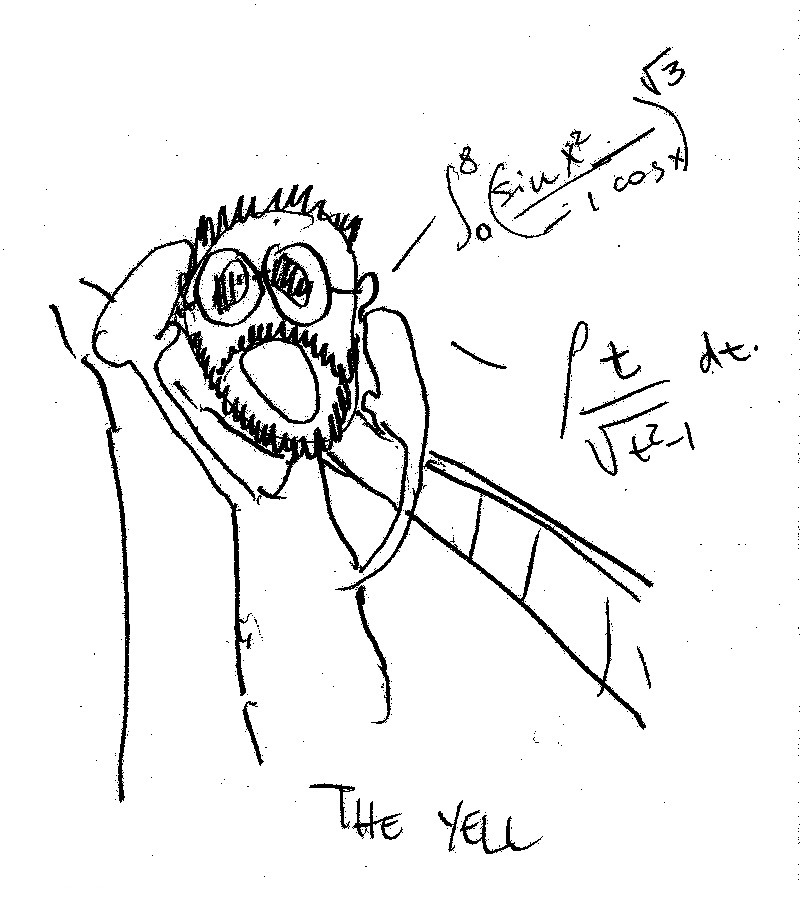 ∫₀⁸ (sin x² / 1 cos x)^√3
∫ t/√t²-1 dt.
THE YELL